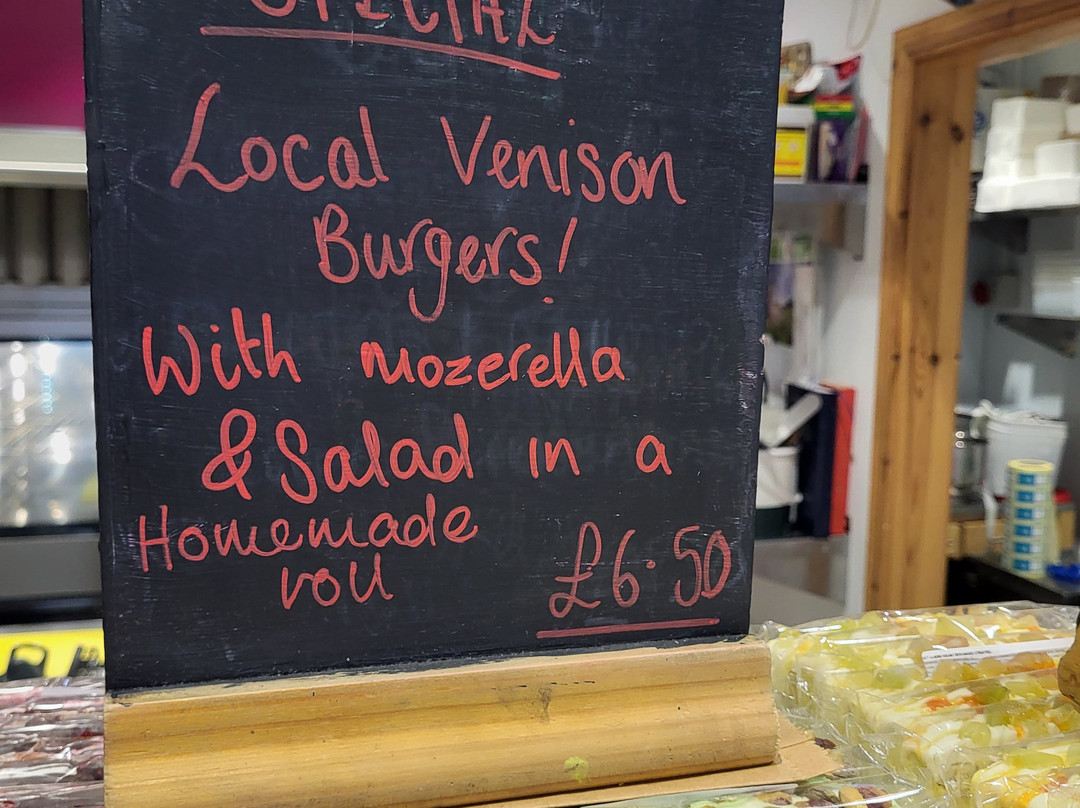 SPECIAL
Local Venison
Burgers!
With mozerella
& Salad in a
Homemade
roll
£6.50